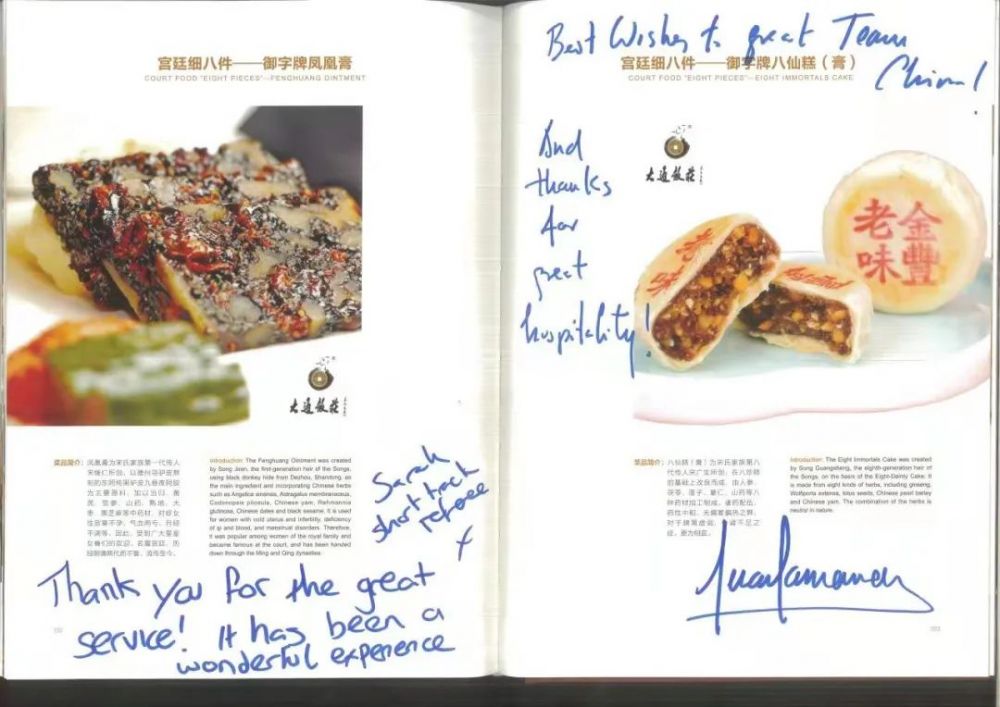 宫廷细八件——御字牌凤凰膏
COURT FOOD "EIGHT PIECES"—FENGHUANG OINTMENT
大通饭庄
菜品简介：
Introduction: The Fenghuang Ointment was created
by Song Jiren, the first-generation heir of the Songs,
using black donkey hide from Dezhou, Shandong, as
the main ingredient and incorporating Chinese herbs
such as Angelica sinensis, Astragalus membranaceus,
Codonopsis pilosula, Chinese yam, Rehmannia
glutinosa, Chinese dates and black sesame. It is used
for women with cold uterus and infertility, deficiency
of qi and blood, and menstrual disorders. Therefore,
it was popular among women of the royal family and
became famous at the court, and has been handed
down through the Ming and Qing dynasties.
Sarah
short track
referee
x
Thank you for the great
service! It has been a
wonderful experience
Best Wishes to great Team
China!
宫廷细八件——御字牌八仙糕（膏）
COURT FOOD "EIGHT PIECES"—EIGHT IMMORTALS CAKE
And
thanks
for
great
hospitality!
大通饭庄
金豐
老味
菜品简介：
Introduction: The Eight Immortals Cake was created
by Song Guangsheng, the eighth-generation heir of
the Songs, on the basis of the Eight-Dainty Cake. It
is made from eight kinds of herbs, including ginseng,
Wolfiporia extensa, lotus seeds, Chinese pearl barley
and Chinese yam. The combination of the herbs is
neutral in nature.